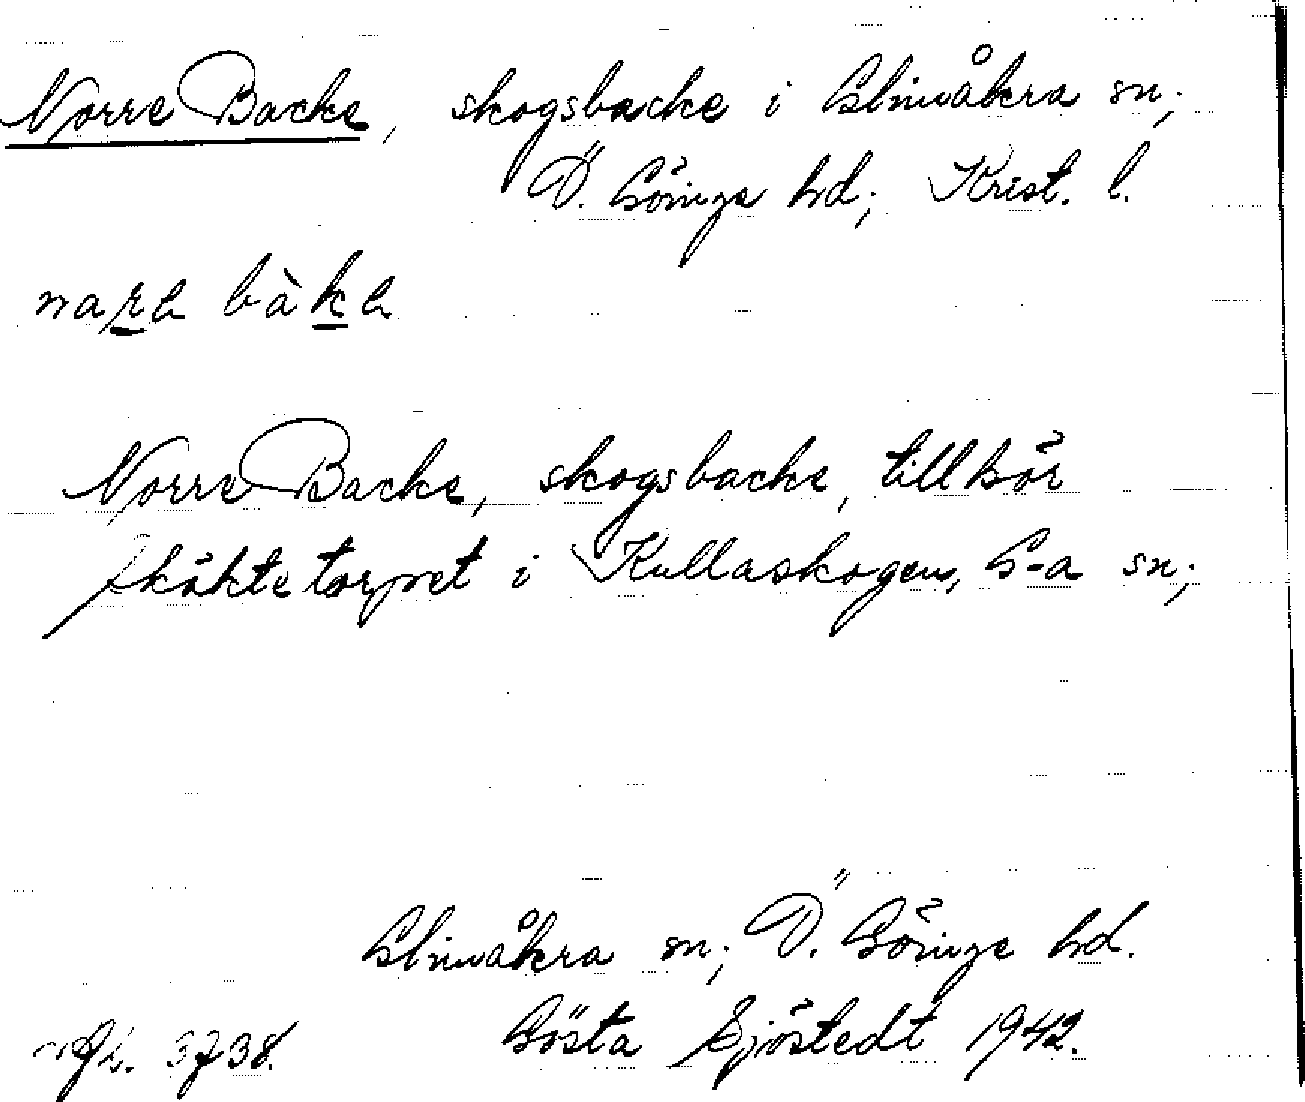 Norre Backe, skogsbacke i Glimåkra sn;
Ö. Göinge hd; Krist. l.
Norre Backe, skogsbacke, tillhör
Skäktetorpet i Kullaskogen, G-a sn;
Glimåkra sn; Ö. Göinge hd.
Gösta Sjöstedt 1942.
3738.